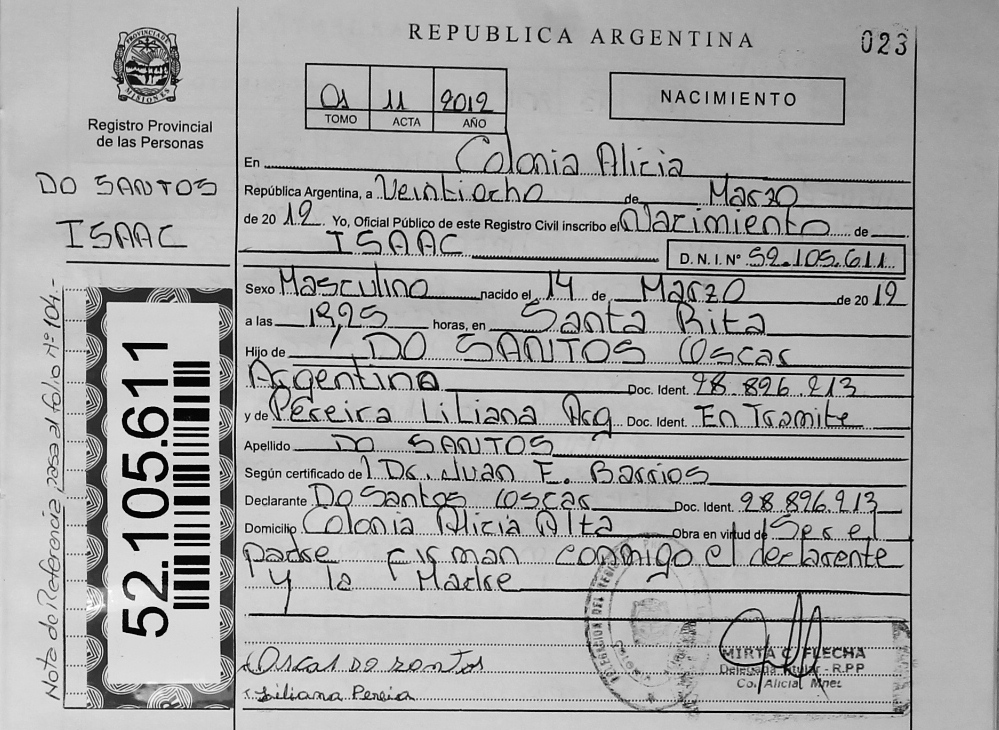 REPUBLICA ARGENTINA
023
PROVINCIA DE MISIONES
Registro Provincial
de las Personas
DO SANTOS
ISAAC
01 11 2012
TOMO ACTA AÑO
NACIMIENTO
En Colonia Alicia
República Argentina, a Veintiocho de Marzo
de 2012 Yo, Oficial Público de este Registro Civil inscribo el Nacimiento de
ISAAC D.N.I. Nº 52.105.611
Sexo Masculino nacido el 14 de Marzo de 2012
a las 13,25 horas, en Santa Rita
Hijo de DO SANTOS Oscar
Argentino Doc. Ident. 28.896.213
y de Pereira Liliana Arg. Doc. Ident. En Tramite
Apellido DO SANTOS
Según certificado de Dr. Juan E. Barrios
Declarante Do Santos Oscar Doc. Ident. 28.896.213
Domicilio Colonia Alicia Alta Obra en virtud de Ser el
padre Firman conmigo el declarente
y la Madre
Oscar DO zantos
Liliana Pereira
MIRTA C. FLECHA
Delegada Titular - R.P.P
Co. Alicia Mnes
52.105.611
Nota de Referencia pasa al folio Nº 104.-